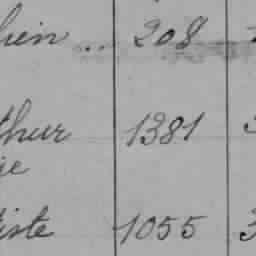 hien ... 208
thur 1381
ie
iste 1055 3